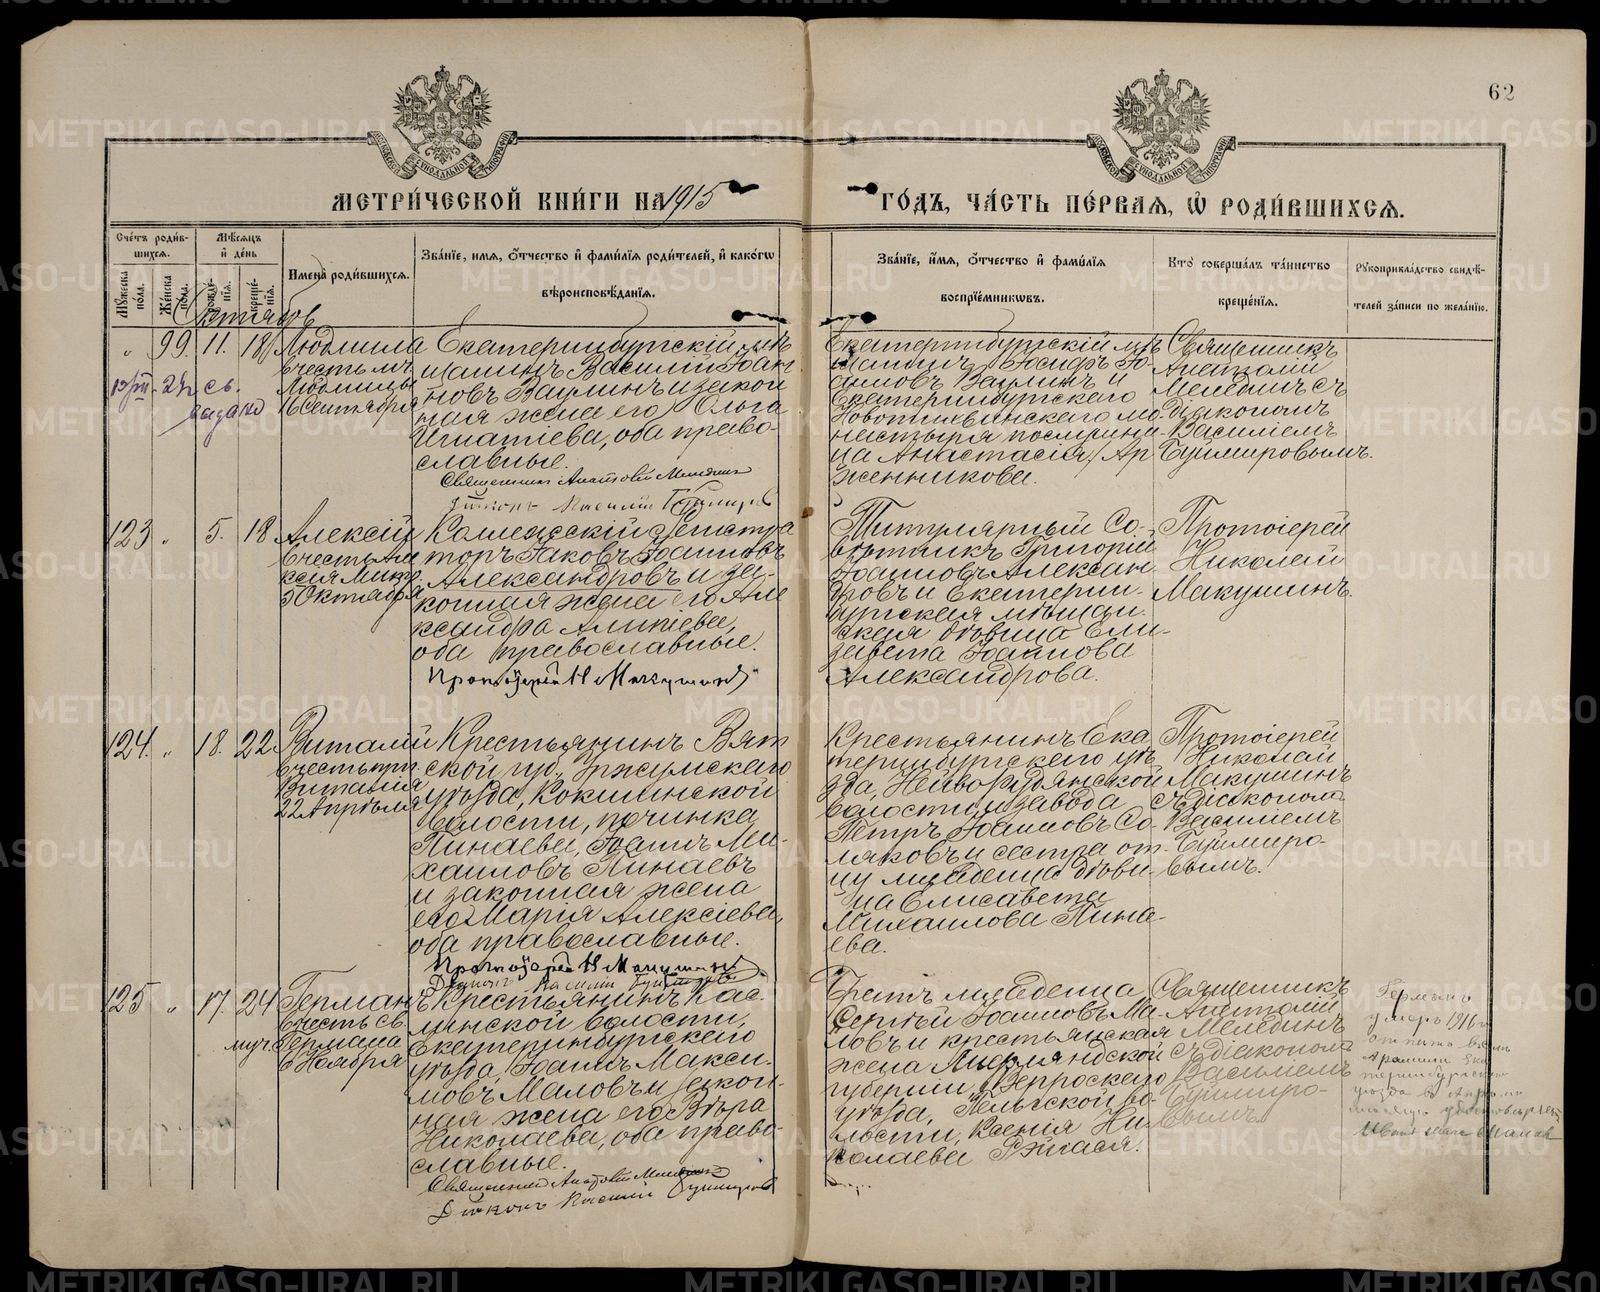 62
МЕТРИ́ЧЕСКОЙ КНИ́ГИ НА 1915
ГО́ДЪ, ЧА́СТЬ ПЕ́РВАЯ, Ѡ҆ РОДИ́ВШИХСЯ.
Счетъ родившихся.
Мужеска пола.
Женска пола.
Мѣсяцъ и день
рожденія.
крещенія.
Имена родившихся.
Званіе, имя, отчество и фамилія родителей, и какого
вѣроисповѣданія.
Званіе, имя, отчество и фамилія
воспріемниковъ.
Кто совершалъ таинство
крещенія.
Рукоприкладство свидѣ-
телей записи по желанію.
Октябрь
" 99. 11. 18
Людмила
въ честь мч.
Людмилы
16 Сентября
Екатеринбургскій мѣ
щанинъ Василій Іоан
новъ Ваулинъ и закон
ная жена его Ольга
Игнатіева, оба право-
славные.
Священникъ Анатолій Меледин
Діаконъ Василій Буймиров
Екатеринбургскій мѣ
щанинъ Іосифъ Іо-
анновъ Ваулинъ и
Екатеринбургскаго
Новотихвинскаго мо-
настыря послушни-
ца Анастасія Ар
женникова.
Священникъ
Анатолій
Мелединъ съ
діакономъ
Василіемъ
Буймировымъ.
123 " 5. 18
Алексій
въ честь Але
ксія Митр.
5 Октября
Коллежскій Регистра
торъ Іаковъ Іоанновъ
Александровъ и за-
конная жена его Але
ксандра Алипіева,
оба православные.
Протоіерей Н Макушинъ
Титулярный Со-
вѣтникъ Григорій
Іоанновъ Алексан
дровъ и Екатерин-
бургская мѣщан
ская дѣвица Ели-
завета Іоаннова
Александрова.
Протоіерей
Николай
Макушинъ.
124. " 18. 22
Виталій
въ честь прп.
Виталія
22 Апрѣля
Крестьянинъ Вят
ской губ., Уржумскаго
уѣзда, Кокшинской
волости, починка
Пинаева, Іоаннъ Ми-
хаиловъ Пинаевъ
и законная жена
его Марія Алексіева,
оба православные.
Протоіерей Н Макушинъ
Діаконъ Василій Буймиров
Крестьянинъ Ека
теринбургскаго уѣ
зда, Нейво-Рудянской
волости и завода
Петръ Іоанновъ Со-
ляковъ и сестра от-
цу младенца дѣви-
ца Елисавета
Михаилова Пина-
ева.
Протоіерей
Николай
Макушинъ
съ діакономъ
Василіемъ
Буймиро-
вымъ.
125 " 17. 24
Германъ
въ честь св.
муч. Германа
6 Ноября
Крестьянинъ Кас-
линской волости,
Екатеринбургскаго
уѣзда, Іоаннъ Макси-
мовъ Маловъ и закон-
ная жена его Вѣра
Николаева, оба право-
славные.
Священникъ Анатолій Меледин
Діаконъ Василій Буймиров
Братъ младенца
Сергѣй Іоанновъ Ма-
ловъ и крестьянская
жена Лифляндской
губерніи,
уѣзда, во-
лости, Ксенія Ни-
колаева
Священникъ
Анатолій
Мелединъ
съ діакономъ
Василіемъ
Буймиро-
вымъ.
Германъ
умеръ 1916 г.
METRIKI.GASO-URAL.RU